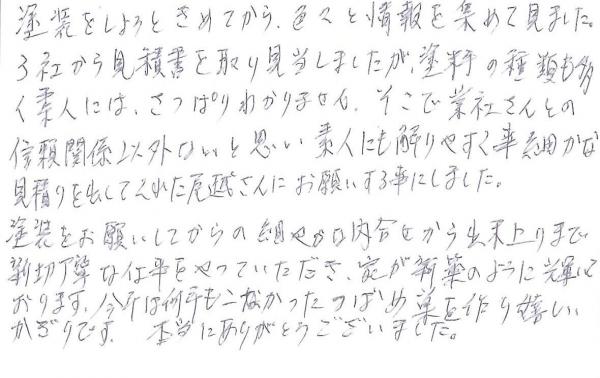 塗装をしようときめてから、色々と情報を集めて見ました。
3社から見積書を取り見当しましたが、塗料の種類も多
く素人には、さっぱりわかりません。そこで業社さんとの
信頼関係以外ないと思い素人にも解りやすく事細かな
見積りを出してくれた尾越さんにお願いする事にしました。
塗装をお願いしてからの細やかな内容から出来上りまで
親切丁寧な仕事をやっていただき、家が新築のように輝いて
おります。今年は何年もこなかったつばめ巣を作り嬉しい
かぎりです。 本当にありがとうございました。